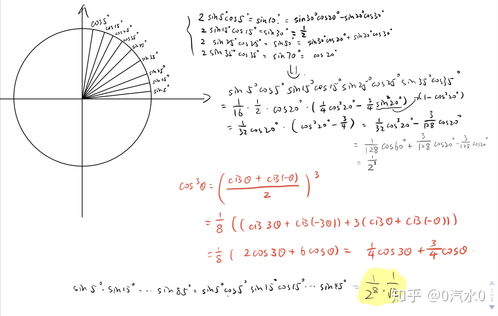 cos5°
cos15°
cos25°
cos35°
sin35°
sin25°
sin15°
sin5°
2 sin5°cos5° = sin10° = sin30°cos20° - sin20°cos30°
2 sin15°cos15° = sin30° = 1/2
2 sin25°cos25° = sin50° = sin30°cos20° + sin20°cos30°
2 sin35°cos35° = sin70° = cos20°
⇓
sin5°cos5° sin15°cos15° sin25°cos25° sin35°cos35°
= 1/16 · 1/2 · cos20° · (1/4 cos²20° - 3/4 sin²20°) (1-cos²20°)
= 1/32 cos20° · (cos²20° - 3/4) = 1/32 cos³20° - 3/128 cos20°
= 1/128 cos60° + 3/128 cos20° - 3/128 cos20°
= 1/2⁸
cos³θ = ((cisθ + cis(-θ))/2)³
= 1/8 ((cis3θ + cis(-3θ)) + 3(cisθ + cis(-θ)))
= 1/8 (2cos3θ + 6cosθ) = 1/4 cos3θ + 3/4 cosθ
sin5° · sin15° ··· sin85° = sin5°cos5° sin15°cos15° ··· sin45° = 1/2⁸ · 1/√2
知乎 @0汽水0